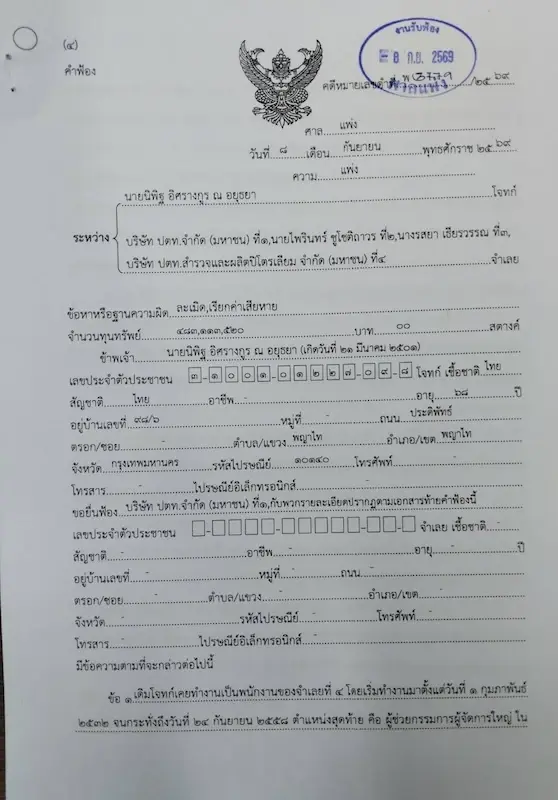 (๔)
คำฟ้อง
งานรับฟ้อง
8 ก.ย. 2569
ศาลแพ่ง
คดีหมายเลขดำที่ พ 3779 /๒๕๖๙
ศาล แพ่ง
วันที่ ๘ เดือน กันยายน พุทธศักราช ๒๕๖๙
ความ แพ่ง
นายนิพิฐ อิศรางกูร ณ อยุธยา โจทก์
ระหว่าง
บริษัท ปตท.จำกัด (มหาชน) ที่๑,นายไพรินทร์ ชูโชติถาวร ที่๒,นางรสยา เธียรวรรณ ที่๓,
บริษัท ปตท.สำรวจและผลิตปิโตรเลียม จำกัด (มหาชน) ที่๔ จำเลย
ข้อหาหรือฐานความผิด ละเมิด,เรียกค่าเสียหาย
จำนวนทุนทรัพย์ ๔๘๓,๑๑๓,๕๒๐ บาท ๐๐ สตางค์
ข้าพเจ้า นายนิพิฐ อิศรางกูร ณ อยุธยา (เกิดวันที่ ๒๑ มีนาคม ๒๕๐๑)
เลขประจำตัวประชาชน ๓-๑๐๐๑-๐๑๒๒๗-๐๙-๘ โจทก์ เชื้อชาติ ไทย
สัญชาติ ไทย อาชีพ - อายุ ๖๘ ปี
อยู่บ้านเลขที่ ๙๘/๖ หมู่ที่ - ถนน ประดิพัทธ์
ตรอก/ซอย - ตำบล/แขวง พญาไท อำเภอ/เขต พญาไท
จังหวัด กรุงเทพมหานคร รหัสไปรษณีย์ ๑๐๑๔๐ โทรศัพท์ -
โทรสาร - ไปรษณีย์อิเล็กทรอนิกส์ -
ขอยื่นฟ้อง บริษัท ปตท.จำกัด (มหาชน) ที่๑,กับพวกรายละเอียดปรากฏตามเอกสารท้ายคำฟ้องนี้
เลขประจำตัวประชาชน จำเลย เชื้อชาติ -
สัญชาติ - อาชีพ - อายุ - ปี
อยู่บ้านเลขที่ - หมู่ที่ - ถนน -
ตรอก/ซอย - ตำบล/แขวง - อำเภอ/เขต -
จังหวัด - รหัสไปรษณีย์ - โทรศัพท์ -
โทรสาร - ไปรษณีย์อิเล็กทรอนิกส์ -
มีข้อความตามที่จะกล่าวต่อไปนี้
ข้อ ๑ เดิมโจทก์เคยทำงานเป็นพนักงานของจำเลยที่ ๔ โดยเริ่มทำงานมาตั้งแต่วันที่ ๑ กุมภาพันธ์
๒๕๓๒ จนกระทั่งถึงวันที่ ๒๔ กันยายน ๒๕๕๘ ตำแหน่งสุดท้าย คือ ผู้ช่วยกรรมการผู้จัดการใหญ่ ใน